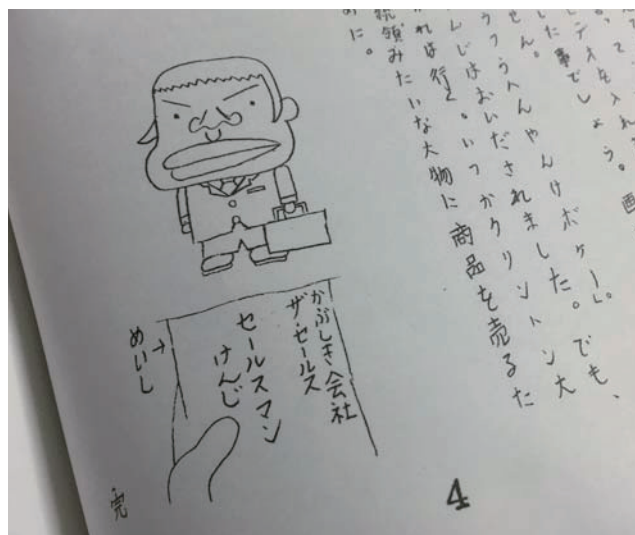 した事でしょう。
せん。
へんやんけボケー」。
んじはおいだされました。でも、
かれは行く。いつかクリントン大
統領みたいな大物に商品を売るた
めに。
かぶしき会社
ザ・セールス
セールスマン
けんじ
↑
めいし
・完
4